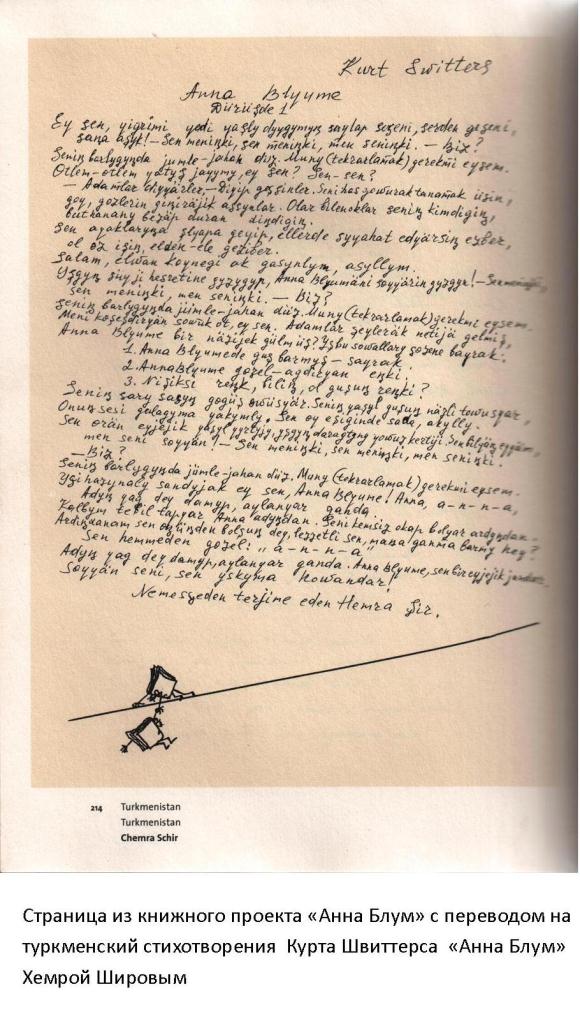 Kurt Switters
Anna Blyume
Dürüşde 1
Ey sen, yigrimi yedi yaşly duýgymyň saýlap seçeni, serden geçeni,
saňa aşyk! — Sen meniňki, sen meniňki, men seniňki. — Biz?
Seniň barlygyňda jümle-jahan düz. Muny (tekrarlamak) gerekmi eýsem.
Otlem-otlem ýatyş jaýymy, eý sen? Sen-sen?
— Adamlar diýýärler, — Diýip geçsinler. Seni has gowurak tanamak üçin,
goý, gözleriň giňiräjik açsynlar. Olar bilenoklar seniň kimdigiň,
buthanany bezäp duran diňdigiň.
Sen aýaklaryňa şlýapa geýip, ellerde syýahat edýärsiň ezber,
ol öz işiň, elden-ele geziber.
Salam, elwan köýnegi ak gasynlym, asyllym.
Yşgyň süýji hesretine gyzgyn, Anna Blyumäni söýýäriň gyzgyn! —
sen meniňki, men seniňki. — Biz?
Seniň barlygyňda jümle-jahan düz. Muny (tekrarlamak) gerekmi eýsem.
Meni köşeşdirýän sowuk ot, eý sen. Adamlar şeýleräk netijä gelmiş,
Anna Blyume bir näzijek gülmüş? Işbu sowallary çözene baýrak:
1. Anna Blyumede guş barmyş — saýrak.
2. Anna Blyume gözel — agdyrýan eňki.
3. Nişiksi reňk, biliň, ol guşuň reňki?
Seniň sary saçyň gögüş öwüsýär. Seniň ýaşyl guşuň näzli
Onuň sesi gulagyma ýakymly. Sen öý eşiginde sada, akylly.
Sen örän eýjejik ýaşyl yşgyň daragtyň
men seni söýýän! — Sen meniňki, sen meniňki, men seniňki.
— Biz?
Seniň barlygyňda jümle-jahan düz. Muny (tekrarlamak) gerekmi eýsem.
Ýşgi hazynaly sandyjak eý sen, Anna Blyume! Anna, a-n-n-a,
Adyň ýag deý damyp, aýlanýar ganda.
Kalbym teşil tapýar Anna adyňdan. Seni kemsiz okap bolýar ardyňdan.
Ardyňdanam sen öňünden bolşuň deý, lezzetli sen, maňa ganma barmy heý?
Sen hemmeden gözel: "a-n-n-a"
Adyň ýag deý damyp, aýlanýar ganda. Anna Blyume, sen bir eýjejik
Söýýän seni, sen yşkyma howandar!
Nemesçeden terjime eden Hemra Şir.
214 Turkmenistan
Turkmenistan
Chemra Schir
Страница из книжного проекта «Анна Блум» с переводом на
туркменский стихотворения Курта Швиттерса «Анна Блум»
Хемрой Шировым